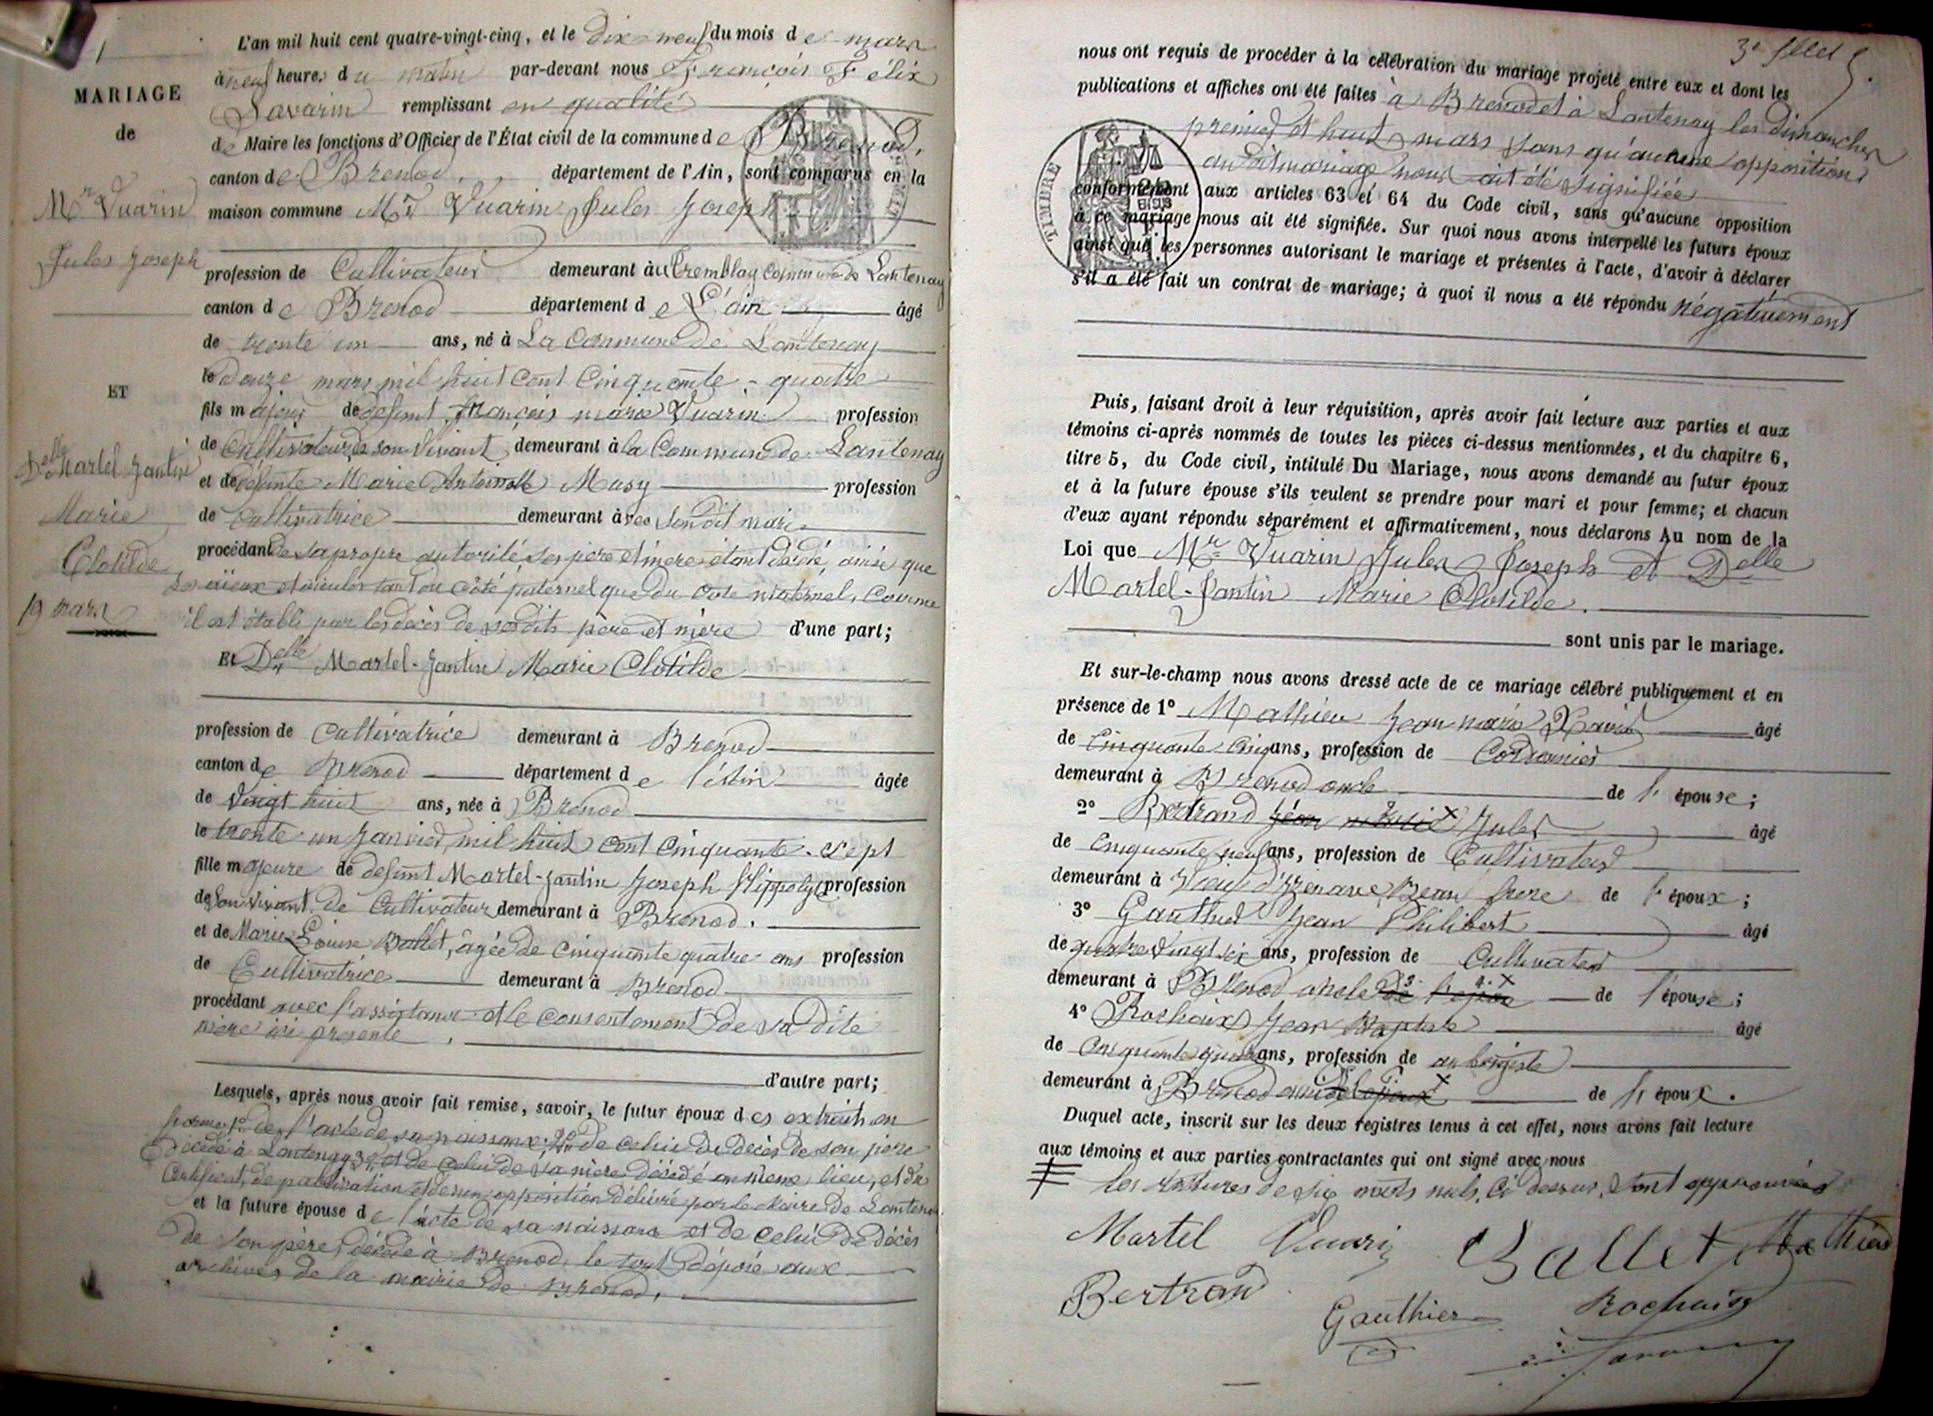 MARIAGE
de
Mr Vuarin
Jules Joseph
ET
Delle Martel-Jantin
Marie
Clotilde
19 mars
L'an mil huit cent quatre-vingt-cinq, et le dix neuf du mois de mars
à neuf heures du matin par-devant nous François Félix
Savarin remplissant en qualité
de Maire les fonctions d'Officier de l'État civil de la commune de Brenod,
canton de Brenod, département de l'Ain, sont comparus en la
maison commune Mr Vuarin Jules Joseph
profession de Cultivateur demeurant au Tremblay commune de Lantenay
canton de Brenod département de L'ain âgé
de trente un ans, né à La Commune de Lantenay
le douze mars mil huit cent cinquante-quatre
fils majeur de défunt François marie Vuarin profession
de Cultivateur de son vivant demeurant à la Commune de Lantenay
et de défunte Marie Antoinette Masy profession
de Cultivatrice demeurant avec son dit mari
procédant de sa propre autorité, ses père et mère étant décédé, ainsi que
ses aïeux et aieules tant du côté paternel que du côté maternel, Comme
il est établi par les décès de sesdits père et mère d'une part;
Et Delle Martel-Jantin Marie Clotilde
profession de Cultivatrice demeurant à Brenod
canton de Brenod département de l'Ain âgée
de vingt huit ans, née à Brenod
le trente un Janvier mil huit cent cinquante-sept
fille majeure de défunt Martel-Jantin Joseph Hippolyte profession
de son vivant de Cultivateur demeurant à Brenod.
et de Marie Louise Ballet, âgée de cinquante quatre ans profession
de Cultivatrice demeurant à Brenod
procédant avec l'assistance et le consentement de sa dite
mère ici présente.
d'autre part;
Lesquels, après nous avoir fait remise, savoir, le futur époux des extraits en
forme 1° de l'acte de sa naissance; 2° de celui du décès de son père
décédé à Lantenay 3° et de celui de sa mère décédé en même lieu, et du
Certificat de publication et de non opposition délivré par le Maire de Lantenay
et la future épouse de l'acte de sa naissance et de celui de décès
de son père, décédé à Brenod, le tout déposé aux
archives de la mairie de Brenod.
3e feuillet
nous ont requis de procéder à la célébration du mariage projeté entre eux et dont les
publications et affiches ont été faites à Brenod et à Lantenay les dimanches
premier et huit mars sans qu'aucune opposition
au dit mariage nous ait été signifiée
TIMBRE
conformément aux articles 63 et 64 du Code civil, sans qu'aucune opposition
à ce mariage nous ait été signifiée. Sur quoi nous avons interpellé les futurs époux
ainsi que les personnes autorisant le mariage et présentes à l'acte, d'avoir à déclarer
s'il a été fait un contrat de mariage; à quoi il nous a été répondu négativement
Puis, faisant droit à leur réquisition, après avoir fait lecture aux parties et aux
témoins ci-après nommés de toutes les pièces ci-dessus mentionnées, et du chapitre 6,
titre 5, du Code civil, intitulé Du Mariage, nous avons demandé au futur époux
et à la future épouse s'ils veulent se prendre pour mari et pour femme; et chacun
d'eux ayant répondu séparément et affirmativement, nous déclarons Au nom de la
Loi que Mr Vuarin Jules Joseph et Delle
Martel-Jantin Marie Clotilde.
sont unis par le mariage.
Et sur-le-champ nous avons dressé acte de ce mariage célébré publiquement et en
présence de 1° Mathieu Jean marie Xavier âgé
de Cinquante-cinq ans, profession de Cordonnier
demeurant à Brenod oncle de l'épouse;
2° Bertrand Jules âgé
de cinquante neuf ans, profession de Cultivateur
demeurant à Vieu d'Izenave Beau frere de l'époux;
3° Gauthier Jean Philibert âgé
de quatre vingt six ans, profession de Cultivateur
demeurant à Brenod oncle de l'épouse;
4° Rochaix Jean Baptiste âgé
de cinquante ans, profession de aubergiste
demeurant à Brenod ami de l'époux.
Duquel acte, inscrit sur les deux registres tenus à cet effet, nous avons fait lecture
aux témoins et aux parties contractantes qui ont signé avec nous
Les ratures de six mots nuls, ci dessus, sont approuvées
Martel Vuarin Ballet Mathieu
Bertrand Gauthier Rochaix
Savarin